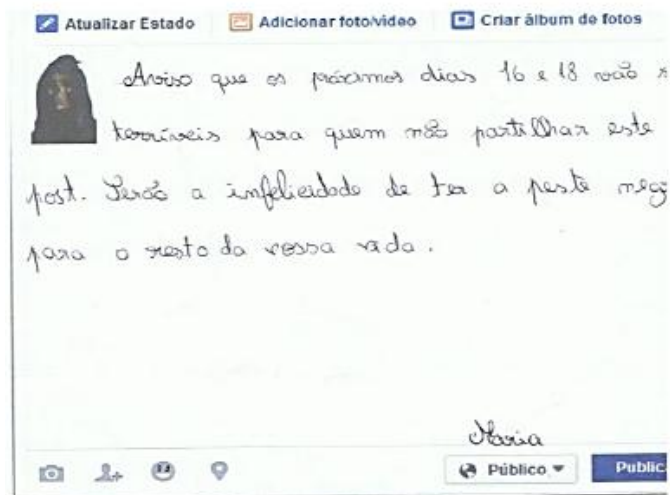 Atualizar Estado Adicionar foto/video Criar álbum de fotos
Aviso que os próximos dias 16 e 18 vão
terríveis para quem não partilhar este
post. Terão a infelicidade de ter a peste neg
para o resto da vossa vida.
Maria
Público Public